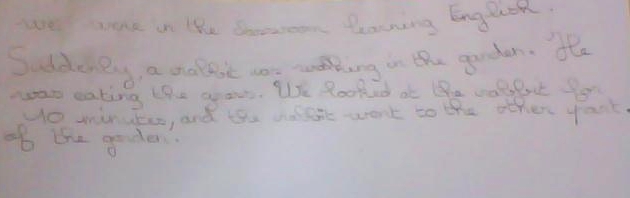 we were in the classroom learning English.
Suddenly, a rabbit was walking in the garden. He
was eating the grass. We looked at the rabbit for
10 minutes, and the rabbit went to the other part
of the garden.